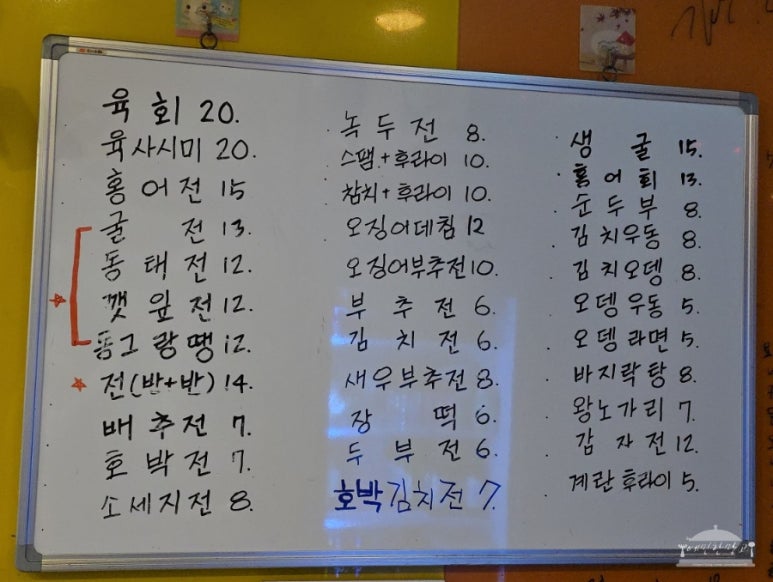 육회 20.
육사시미 20.
홍어전 15
굴전 13.
동태전 12.
깻잎전 12.
동그랑땡 12.
전(반+반) 14.
배추전 7.
호박전 7.
소세지전 8.
녹두전 8.
스팸+후라이 10.
참치+후라이 10.
오징어데침 12
오징어부추전 10.
부추전 6.
김치전 6.
새우부추전 8.
장떡 6.
두부전 6.
호박김치전 7.
생굴 15.
홍어회 13.
순두부 8.
김치우동 8.
김치오뎅 8.
오뎅우동 5.
오뎅라면 5.
바지락탕 8.
왕노가리 7.
감자전 12.
계란후라이 5.